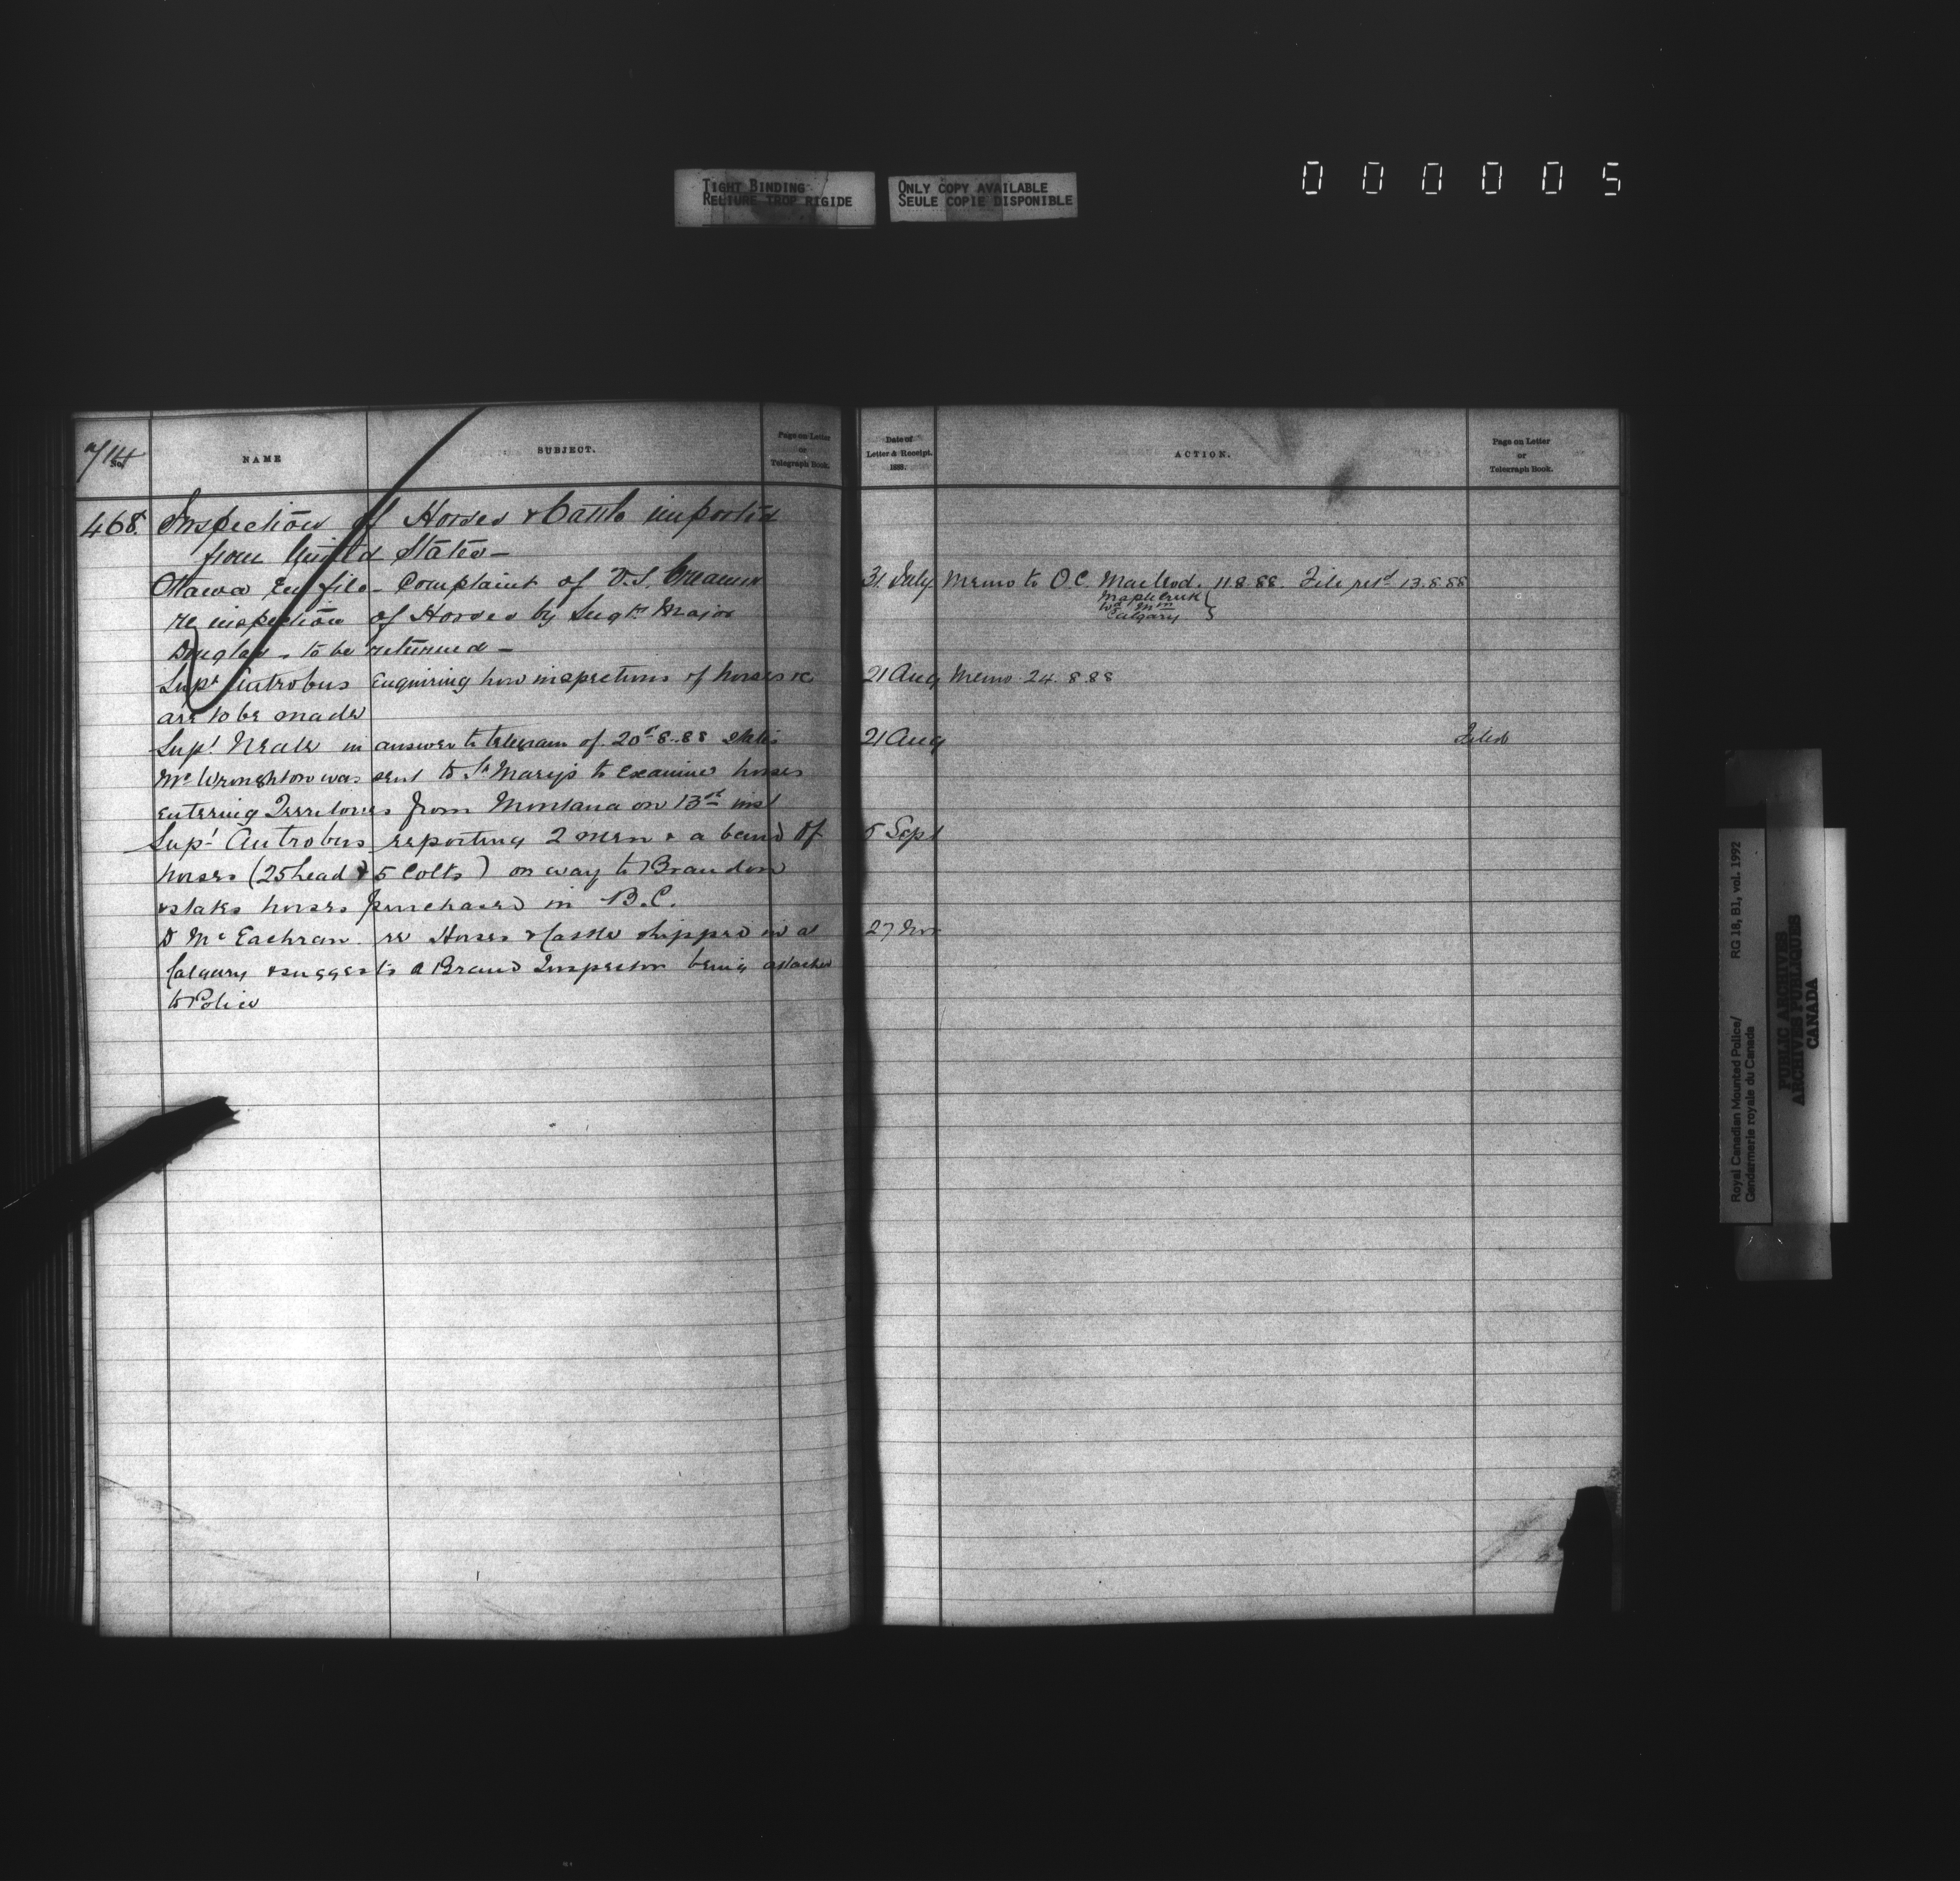 TIGHT BINDING
RELIURE TROP RIGIDE
ONLY COPY AVAILABLE
SEULE COPIE DISPONIBLE
000005
No.
NAME
SUBJECT.
Page on Letter
or
Telegraph Book.
468. Inspection of Horses & Cattle imported
from United States —
Ottawa En file - Complaint of V.S. Creamer
re inspection of Horses by Sergt. Major
Douglas - to be returned —
Supt Antrobus enquiring how inspections of horses &c
are to be made
Supt Neale in answer to telegram of 20th 8.88 states
Mr Wroughton was sent to St Mary's to examine horses
entering Territories from Montana on 13th inst
Supt Antrobus reporting 2 men & a band of
horses (25 head & 5 Colts) on way to Brandon
& states horses purchased in B.C.
D McEachran re Horses & Cattle shipped in at
Calgary & suggests a Brand Inspector being attached
to Police
Date of
Letter & Receipt.
1888.
ACTION.
Page on Letter
or
Telegraph Book.
31 July Memo to O.C. Macleod. 11.8.88. File retd 13.8.88
Maple Creek
Wd Mn
Calgary
21 Aug Memo 24.8.88
21 Aug Filed
5 Sept
27 Nov
Royal Canadian Mounted Police/ RG 18, B1, vol. 1992
Gendarmerie royale du Canada
PUBLIC ARCHIVES
ARCHIVES PUBLIQUES
CANADA